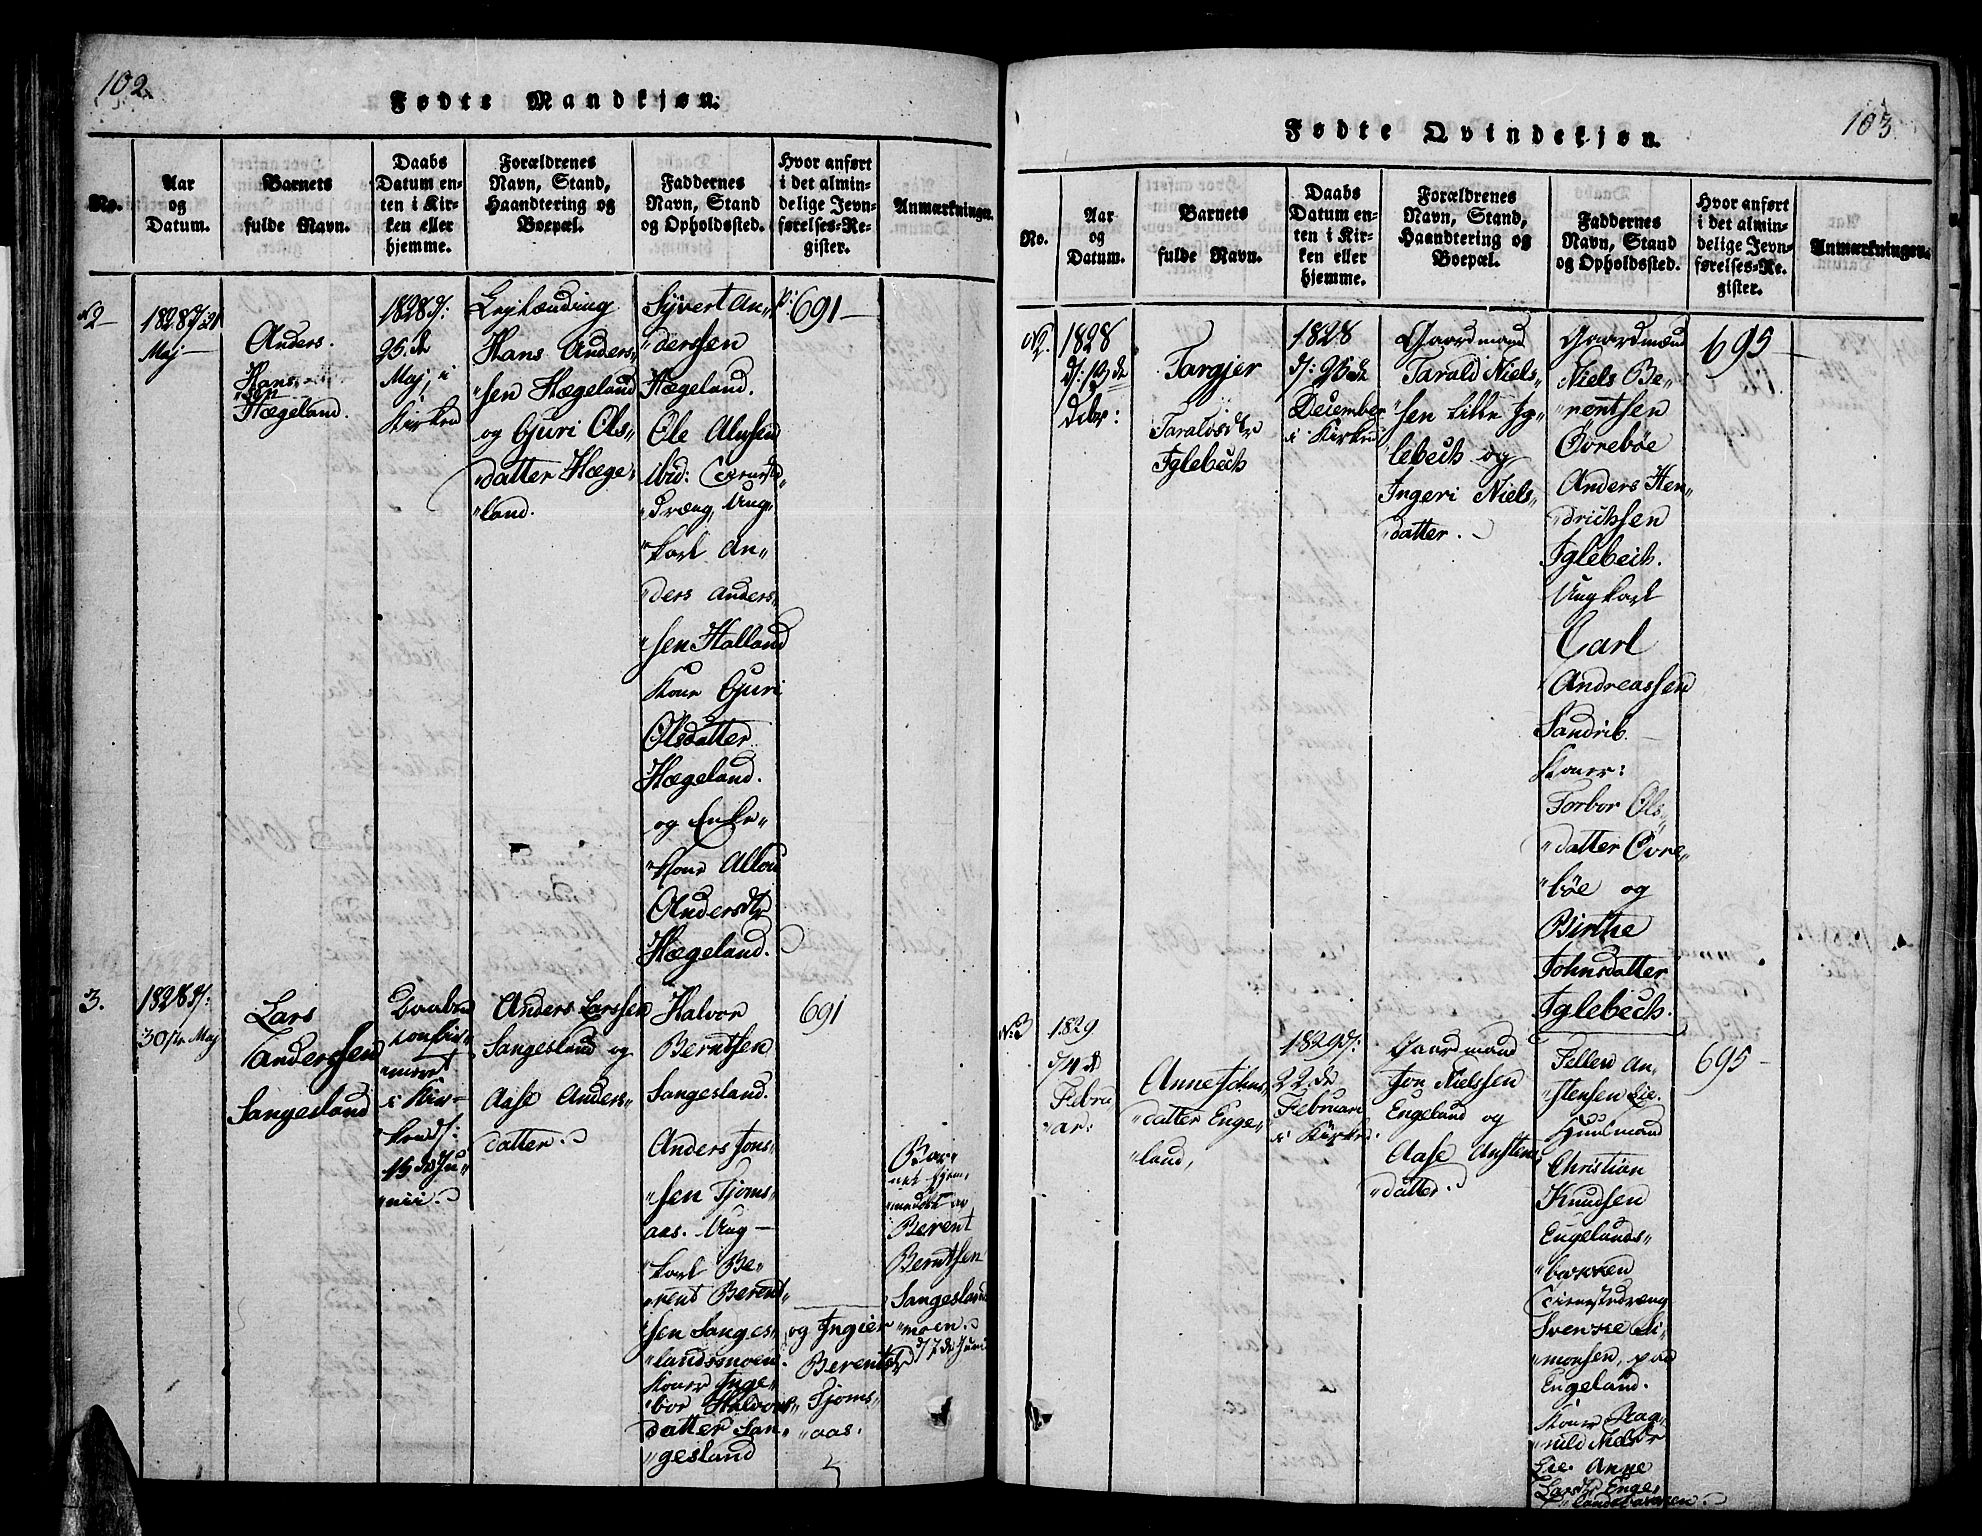 102.
Fødte Mandkjøn.
No.
Aar
og
Datum.
Barnets
fulde Navn.
Daabs
Datum en-
ten i Kir-
ken eller
hjemme.
Forældrenes
Navn, Stand,
Haandtering og
Boepæl.
Faddernes
Navn, Stand
og Opholdssted.
Hvor anført
i det almin-
delige Jevn-
førelses-Re-
gister.
Anmærkninger.
2
1828 d: 21
Maj
Anders
Hans
sen
Hægeland.
1828 d:
25. de
Maj, i
Kirken
Leylænding
Hans Anders„
„sen Hægeland
og Guri Ols„
datter Hæge„
„land.
Syvert An„
„derssen
Hægeland.
Ole Alufsen
ibid:
„dræng, Ung„
„karl An„
„ders Anders„
„sen Halland
Kone Guri
Olsdatter
Hægeland.
og Enke„
„kone
Andersdtr
Hægeland.
p: 691
3.
1828 d:
30te Maj
Lars
Anderssen
Sangesland
Daaben
confir„
„meret
i Kir„
ken d:
15 de Ju„
„nii.
Anders Larssen
Sangesland og
Aase Anders„
datter.
Halvor
Berntsen
Sangesland.
Anders Jons„
„sen Tjoms„
aas. Ung
„karl Be„
„rent Berent„
„sen Sanges„
„landsmoen.
Koner Inge„
„bor Halvors„
datter San„
„gesland
691
og Ingier
Berentsdtr
Tjoms„
„aas.
Bar„
net hjem„
„medøbt av
Berent
Berntsen
Sangesland
„moen.
d/ 7 de Juni
103.
Fødte Qvindekjøn.
No.
Aar
og
Datum.
Barnets
fulde Navn.
Daabs
Datum en-
ten i Kir-
ken eller
hjemme.
Forældrenes
Navn, Stand,
Haandtering og
Boepæl.
Faddernes
Navn, Stand
og Opholdssted.
Hvor anført
i det almin-
delige Jevn-
førelses-Re-
gister.
Anmærkninger.
2.
1828
d: 13 de
Debr:
Targjer
Taraldsdtr
Iglebech
1828
d: 26 de
December
i Kirken
Gaardmand
Tarald Niels„
„sen Lille Ig„
lebech og
Ingeri Niels„
datter.
Gaardmænd
Niels Be„
„rentsen
Øvrebøe
Anders Hen„
„drichsen
Iglebech.
Ungkarl
Carl
Andreassen
Sandrib
Koner:
Torbor Ols„
„datter Øvre„
„bøe og
Birthe
Johnsdatter
Iglebech.
695
No: 3
1829
d/ 4 de
Febru
„ar:
Anne Johns„
„datter Enge„
„land,
1829 d:
22. de
Februari
i Kirken.
Gaardmand
Jon Nielssen
Engeland og
Aase Anstens
datter.
Tellev An„
„stensen Lie.
Huusmand
Christian
Knudsen
Engelands„
„bakken
Tienestedræng
Svenke Si„
„monsen, paa
Engeland.
Koner Rag„
„nild Nielsdtr
Lie. Anne
Larsdtr Enge„
„landsbakken.
695